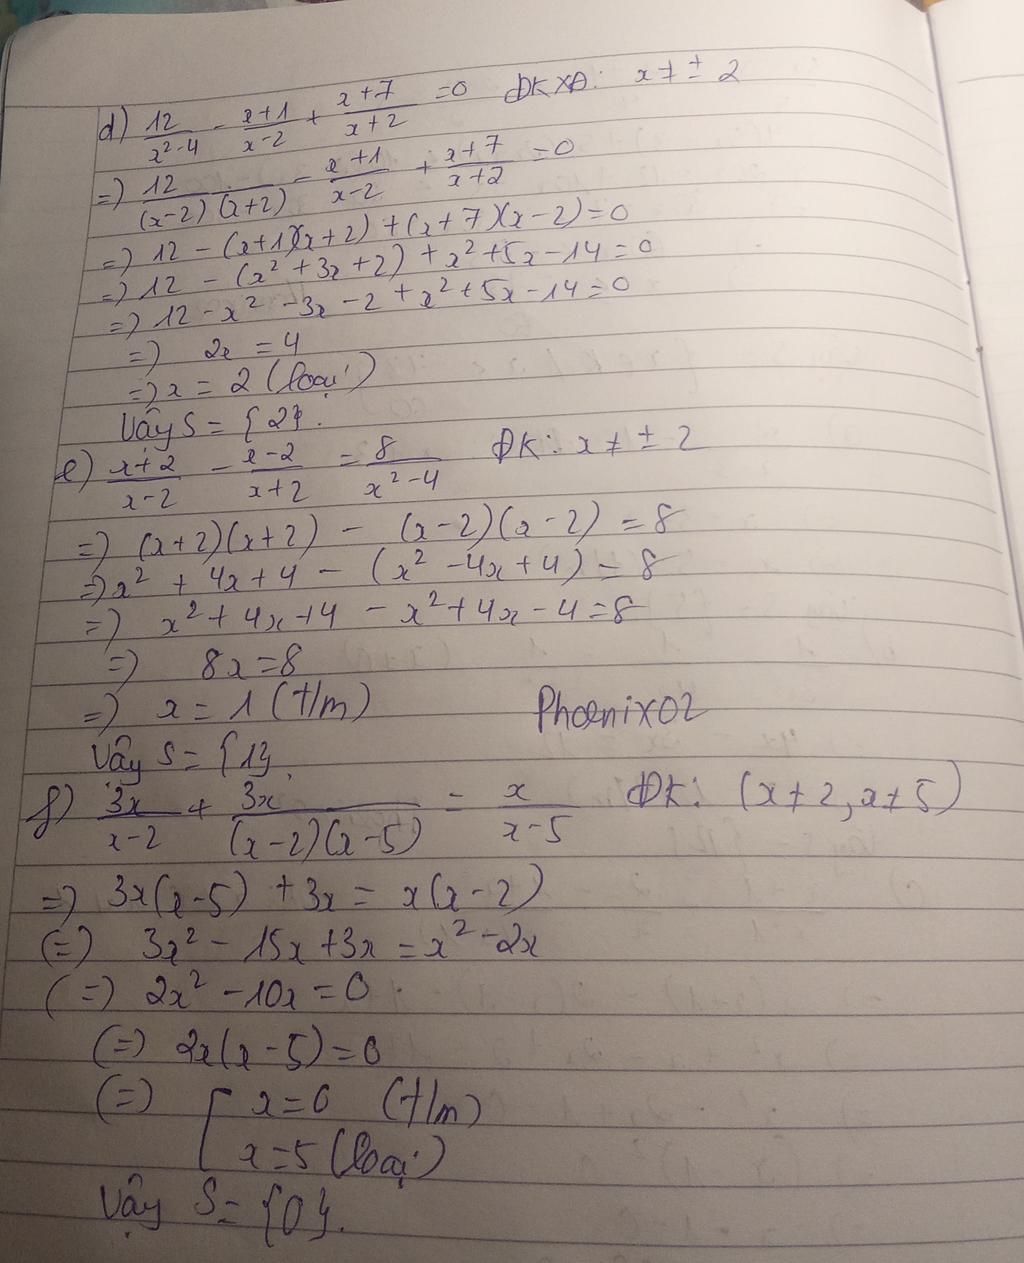 d) 12/(x²-4) - (x+1)/(x-2) + (x+7)/(x+2) = 0 ĐKXĐ: x ≠ ± 2
=) 12/((x-2)(x+2)) - (x+1)/(x-2) + (x+7)/(x+2) = 0
=) 12 - (x+1)(x+2) + (x+7)(x-2) = 0
=) 12 - (x² + 3x + 2) + x² + 5x - 14 = 0
=) 12 - x² - 3x - 2 + x² + 5x - 14 = 0
=) 2x = 4
=) x = 2 (loại)
Vậy S = {2}.
e) (x+2)/(x-2) - (x-2)/(x+2) = 8/(x²-4) ĐK: x ≠ ± 2
=) (x+2)(x+2) - (x-2)(x-2) = 8
=) x² + 4x + 4 - (x² - 4x + 4) = 8
=) x² + 4x + 4 - x² + 4x - 4 = 8
=) 8x = 8
=) x = 1 (t/m)
Phoenix02
Vậy S = {1}.
f) 3x/(x-2) + 3x/((x-2)(x-5)) = x/(x-5) ĐK: (x ≠ 2, x ≠ 5)
=) 3x(x-5) + 3x = x(x-2)
(=) 3x² - 15x + 3x = x² - 2x
(=) 2x² - 10x = 0.
(=) 2x(x-5) = 0
(=) [ x = 0 (t/m)
x = 5 (loại)
Vậy S = {0}.